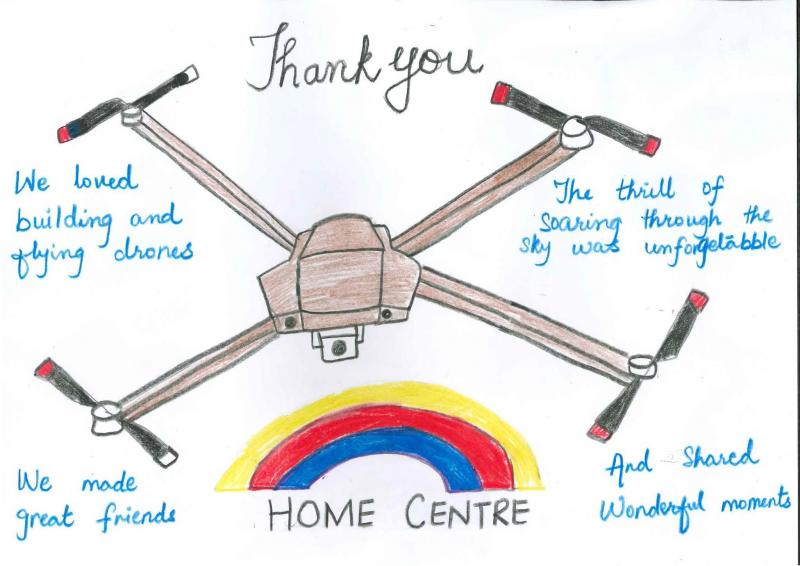 Thank you
We loved
building and
flying drones
The thrill of
soaring through the
sky was unforgetabble
We made
great friends
And Shared
Wonderful moments
HOME CENTRE